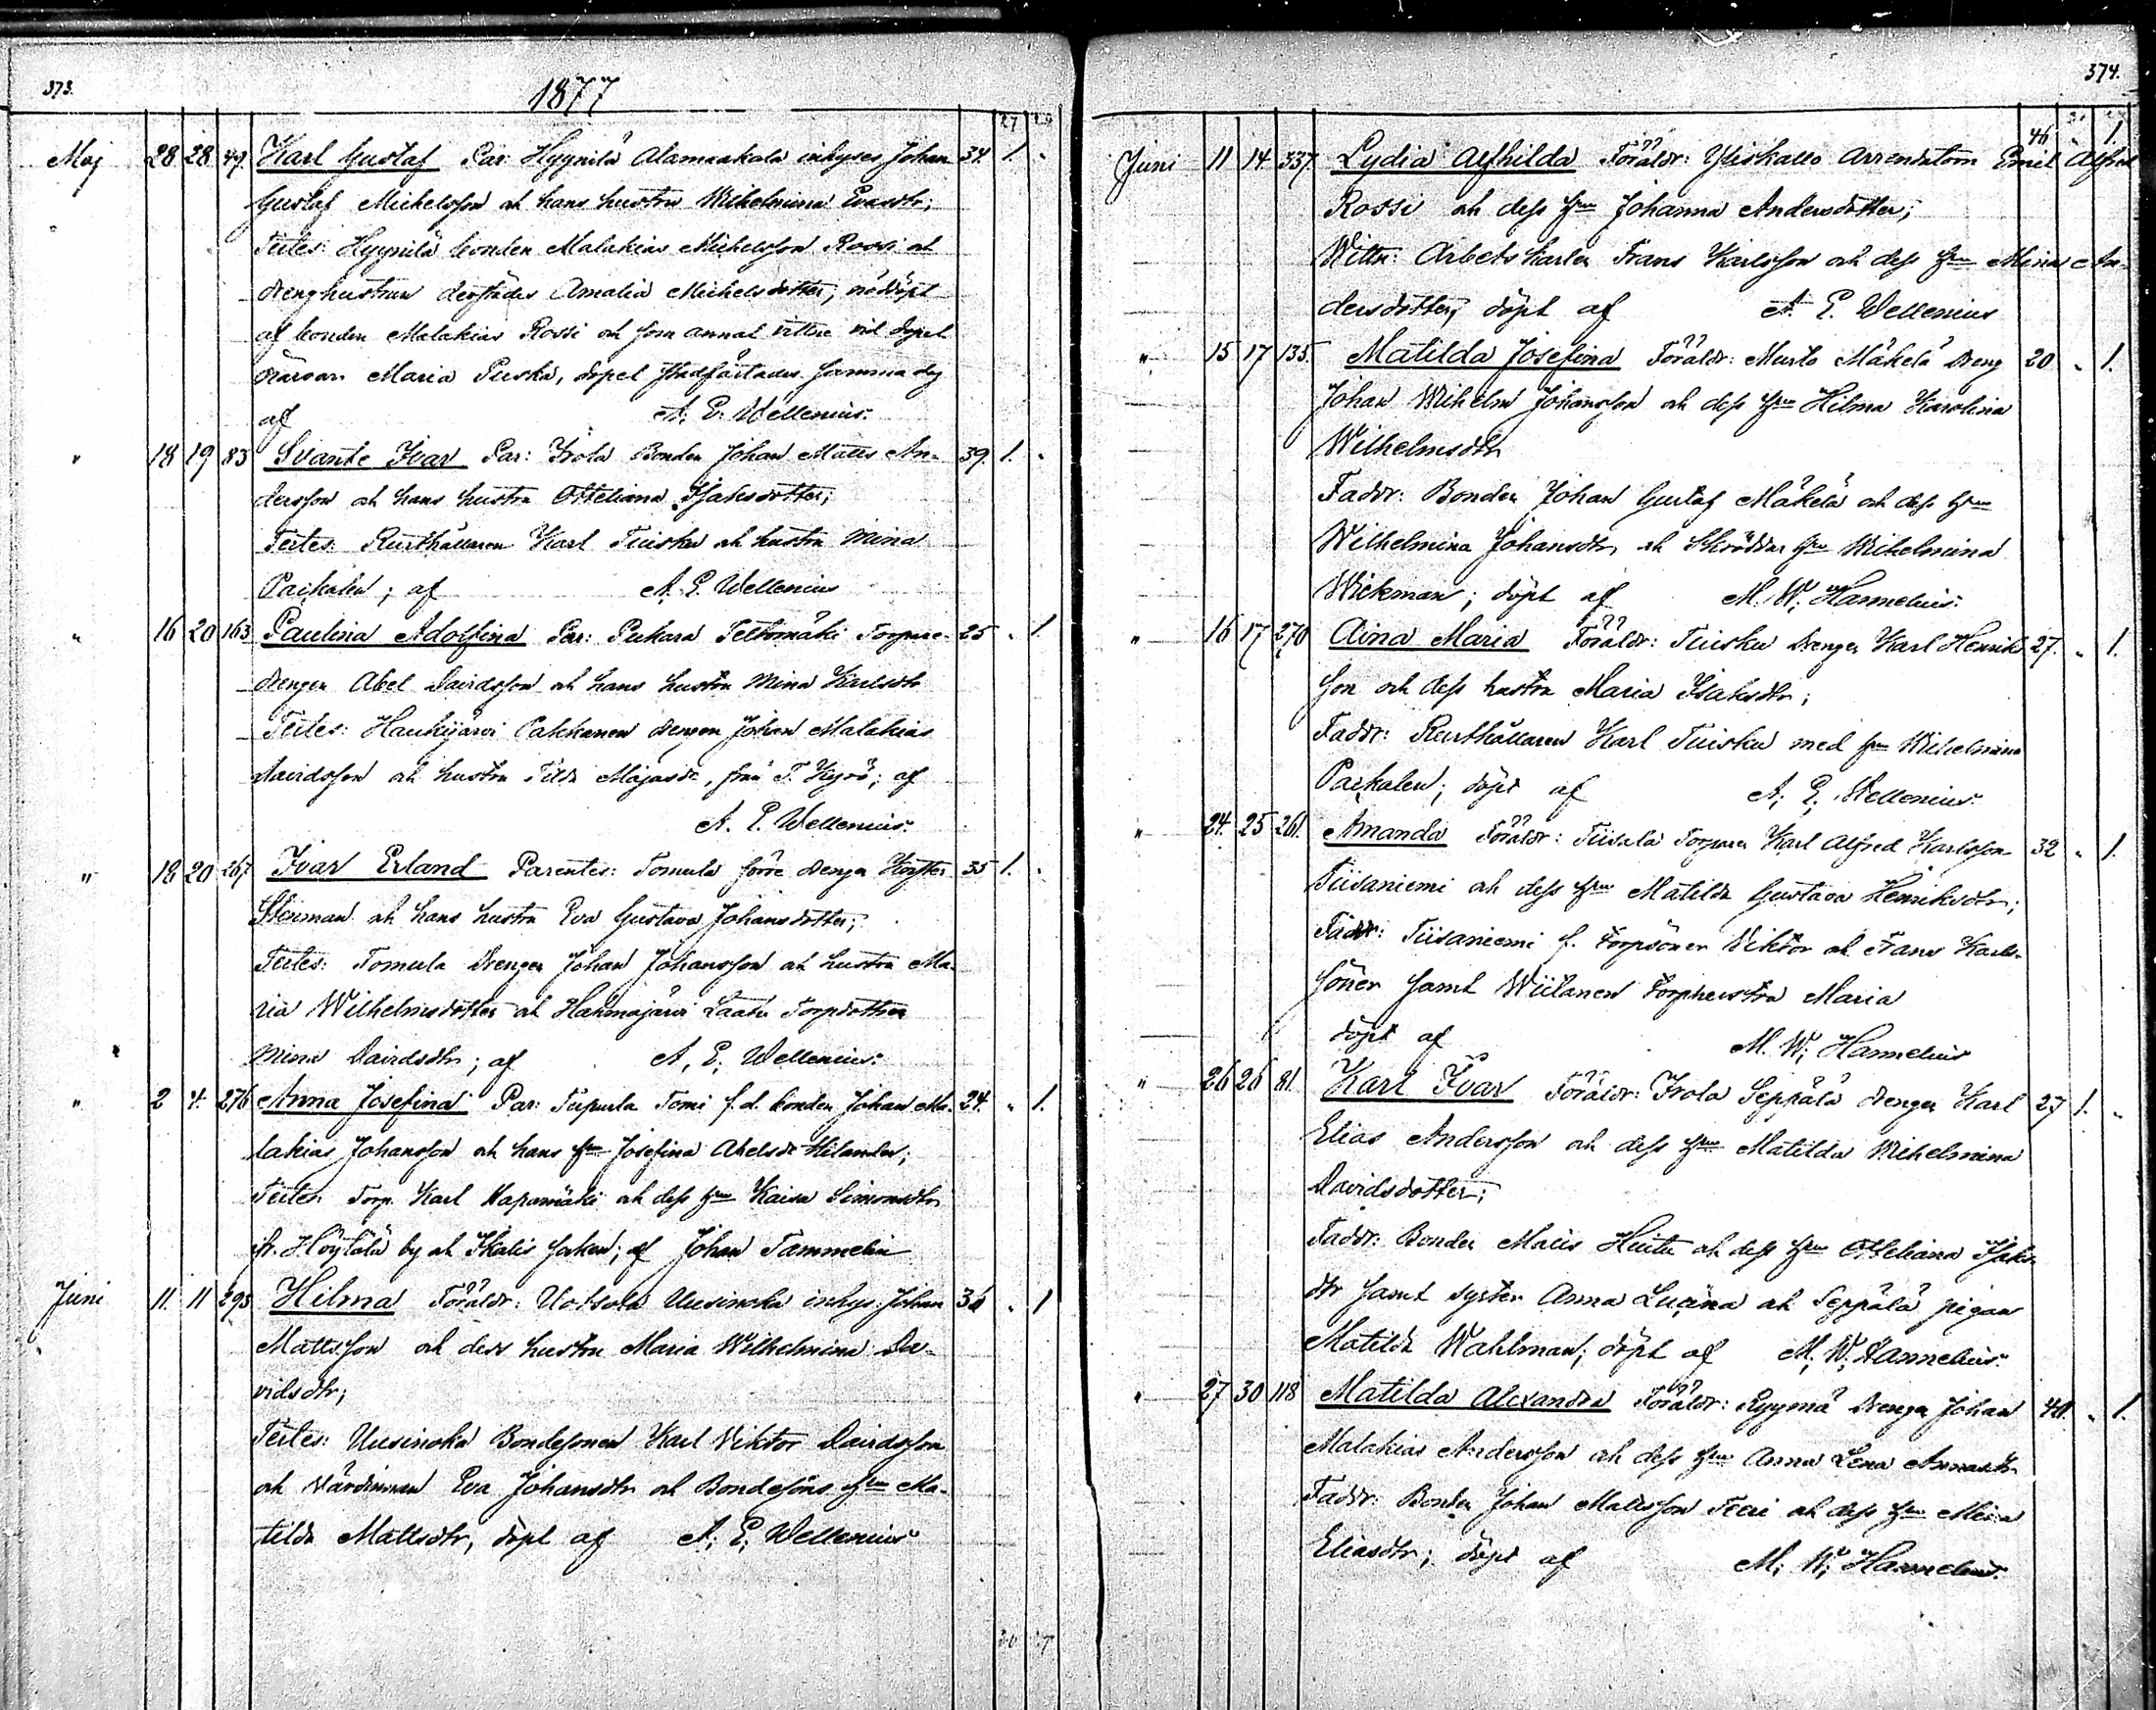 373.
1877
Maj 28 28 49. Karl Gustaf Par: Hyynilä Alamaakala inhyses Johan 34. 1. "
Gustaf Michelsson och hans hustru Wilhelmina Evasdtr;
Testes: Hyynilä bonden Malakias Michelsson Rossi och
drenghustrun derstädes Amalia Michelsdotter, nöddöpt
af bonden Malakias Rossi och som annat vittne vid dopet
närvar Maria Puska, dopet stadfästades samma dag
af A. E. Wellenius.
" 18 19 83 Svante Ivar Par: Irola Bonden Johan Matts An- 39. 1. "
dersson och hans hustru Otteliana Isaksdotter;
Testes: Rusthållaren Karl Tuisku och hustru Mina
Paikalen; af A. E. Wellenius
" 16 20 163 Paulina Adolfina Par: Pukara Peltomäki Torpare- 25 " 1.
drengen Abel Davidsson och hans hustru Mina Karlsdtr
Testes: Haukijärvi Pakkanen drengen Johan Malakias
Davidsson och hustru Tilda Majasdr, från T. Kyrö; af
A. E. Wellenius.
" 18 20 267 Ivar Erland Parentes: Tomula förre drengen Krister 35 1. "
Stenman och hans hustru Eva Gustava Johansdotter;
Testes: Tomula Drengen Johan Johansson och hustru Ma-
ria Wilhelmsdotter och Hahmajärvi Laatu Torpdottren
Mina Davidsdtr; af A. E. Wellenius.
" 2 4. 276 Anna Josefina Par: Tupurla Tomi f.d. bonden Johan Ma- 24. " 1.
lakias Johansson och hans hru Josefina Abelsdr Hilander;
Testes: Torp. Karl Hapamäki och dess hru Kaisa Simonsdtr
fr. Höytölä by och Ikalis socken; af Johan Tammelin
Juni 11. 11 295 Hilma Föräldr: Uotsola Uusinoka inhys. Johan 36 " 1
Mattsson och dess hustru Maria Wilhelmina Da-
vidsdtr;
Testes: Uusinoka Bondesonen Karl Viktor Davidsson
och värdinnan Eva Johansdtr och Bondesons hru Ma-
tilda Mattsdtr, döpt af A. E. Wellenius
374.
Juni 11 14 337. Lydia Alfhilda Föräldr: Yliskallo Arrendatorn Emil Alfred 46 " 1.
Rossi och dess hru Johanna Andersdotter;
Wittn: Arbetskarlen Frans Karlsson och dess hru Mina An-
dersdotter, döpt af A. E. Wellenius
" 15 17 135. Matilda Josefina Föräldr: Murto Mäkelä Dreng 20 " 1.
Johan Wilhelm Johansson och dess hru Hilma Karolina
Wilhelmsdtr
Faddr: Bonden Johan Gustaf Mäkelä och dess hru
Wilhelmina Johansdtr, och Skräddar hru Wilhelmina
Wickman; döpt af M. W. Hannelius.
" 16 17 270 Aina Maria Föräldr: Tuisku Drengen Karl Henrik 27. " 1.
son och dess hustru Maria Isaksdtr;
Faddr: Rusthållaren Karl Tuisku med hru Wilhelmina
Paikalen; döpt af A. E. Wellenius.
" 24. 25 261. Amanda Föräldr: Tiisala Torparen Karl Alfred Karlsson 32 " 1.
Tiisaniemi och dess hru Matilda Gustava Henriksdtr;
Faddr: Tiisaniemi f. Torpsöner Viktor och Frans Karls-
söner samt Wiitanen Torphustru Maria
döpt af M. W. Hannelius
" 26 26 81 Karl Ivar Föräldr: Irola Seppälä drengen Karl 27 1. "
Elias Andersson och dess hru Matilda Wilhelmina
Davidsdotter;
Faddr: Bonden Matts Huitu och dess hru Otteliana Isaks-
dtr samt syster Anna Lucina och Seppälä pigan
Matilda Wahlman; döpt af M. W. Hannelius.
" 27 30 118 Matilda Alexandra Föräldr: Ryymä Drengen Johan 40. " 1.
Malakias Andersson och dess hru Anna Lena Annasdtr
Faddr: Bonden Johan Mattsson Teeri och dess hru Mina
Eliasdtr; döpt af M. W. Hannelius.